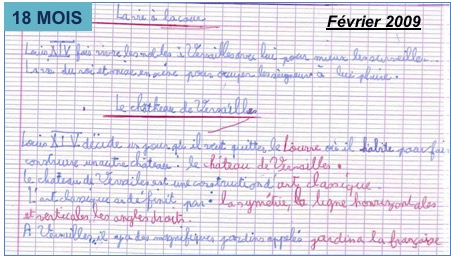 18 MOIS
Février 2009
La vie à la cour
Louis XIV fais vivre les nobles à Versailles avec lui pour mieux les surveiller.
La vie du roi est mise en scène pour occuper les seigneurs à lui plaire.
Le château de Versailles
Louis XIV décide un jour qu'il veut quitter le Louvre où il habite pour faire
construire un autre château : le château de Versailles.
Le chateau de Versailles est une construction d'art classique.
L'art classique se définit par : la symétrie, la ligne horizontales
et verticales, les angles droits.
A Versailles, il y a des magnifiques jardins appelés jardin a la française